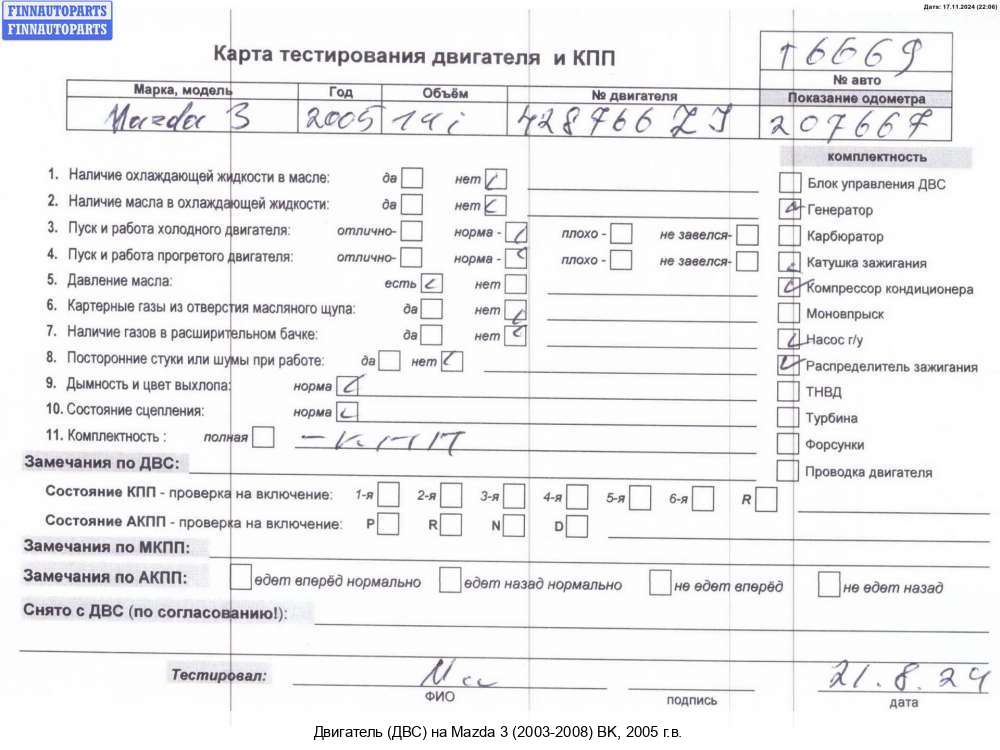 FINNAUTOPARTS
FINNAUTOPARTS
Дата: 17.11.2024 (22:06)
Карта тестирования двигателя и КПП
т6669
№ авто
Марка, модель Год Объём № двигателя Показание одометра
Mazda 3 2005 1.4i 428766 ZJ 207667
комплектность
1. Наличие охлаждающей жидкости в масле: да нет
Блок управления ДВС
2. Наличие масла в охлаждающей жидкости: да нет
Генератор
3. Пуск и работа холодного двигателя: отлично- норма - плохо - не завелся-
Карбюратор
4. Пуск и работа прогретого двигателя: отлично- норма - плохо - не завелся-
Катушка зажигания
5. Давление масла: есть нет
Компрессор кондиционера
6. Картерные газы из отверстия масляного щупа: да нет
Моновпрыск
7. Наличие газов в расширительном бачке: да нет
Насос г/у
8. Посторонние стуки или шумы при работе: да нет
Распределитель зажигания
9. Дымность и цвет выхлопа: норма
ТНВД
10. Состояние сцепления: норма
Турбина
11. Комплектность : полная – КПП
Форсунки
Замечания по ДВС:
Проводка двигателя
Состояние КПП - проверка на включение: 1-я 2-я 3-я 4-я 5-я 6-я R
Состояние АКПП - проверка на включение: P R N D
Замечания по МКПП:
Замечания по АКПП: едет вперёд нормально едет назад нормально не едет вперёд не едет назад
Снято с ДВС (по согласованию!):
Тестировал: 21.8.24
ФИО подпись дата
Двигатель (ДВС) на Mazda 3 (2003-2008) BK, 2005 г.в.